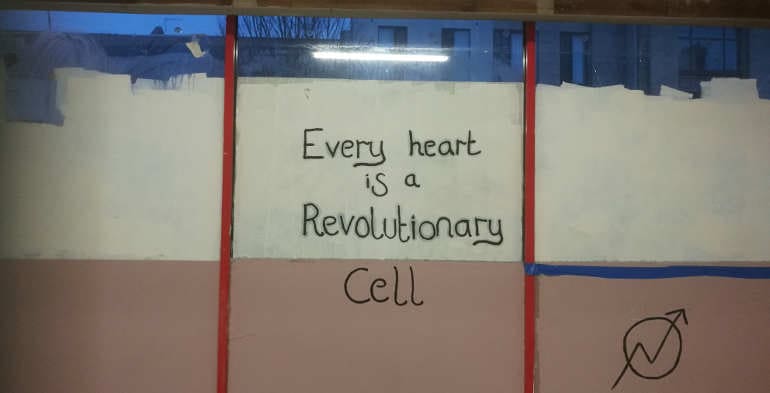 Every heart
is a
Revolutionary
Cell